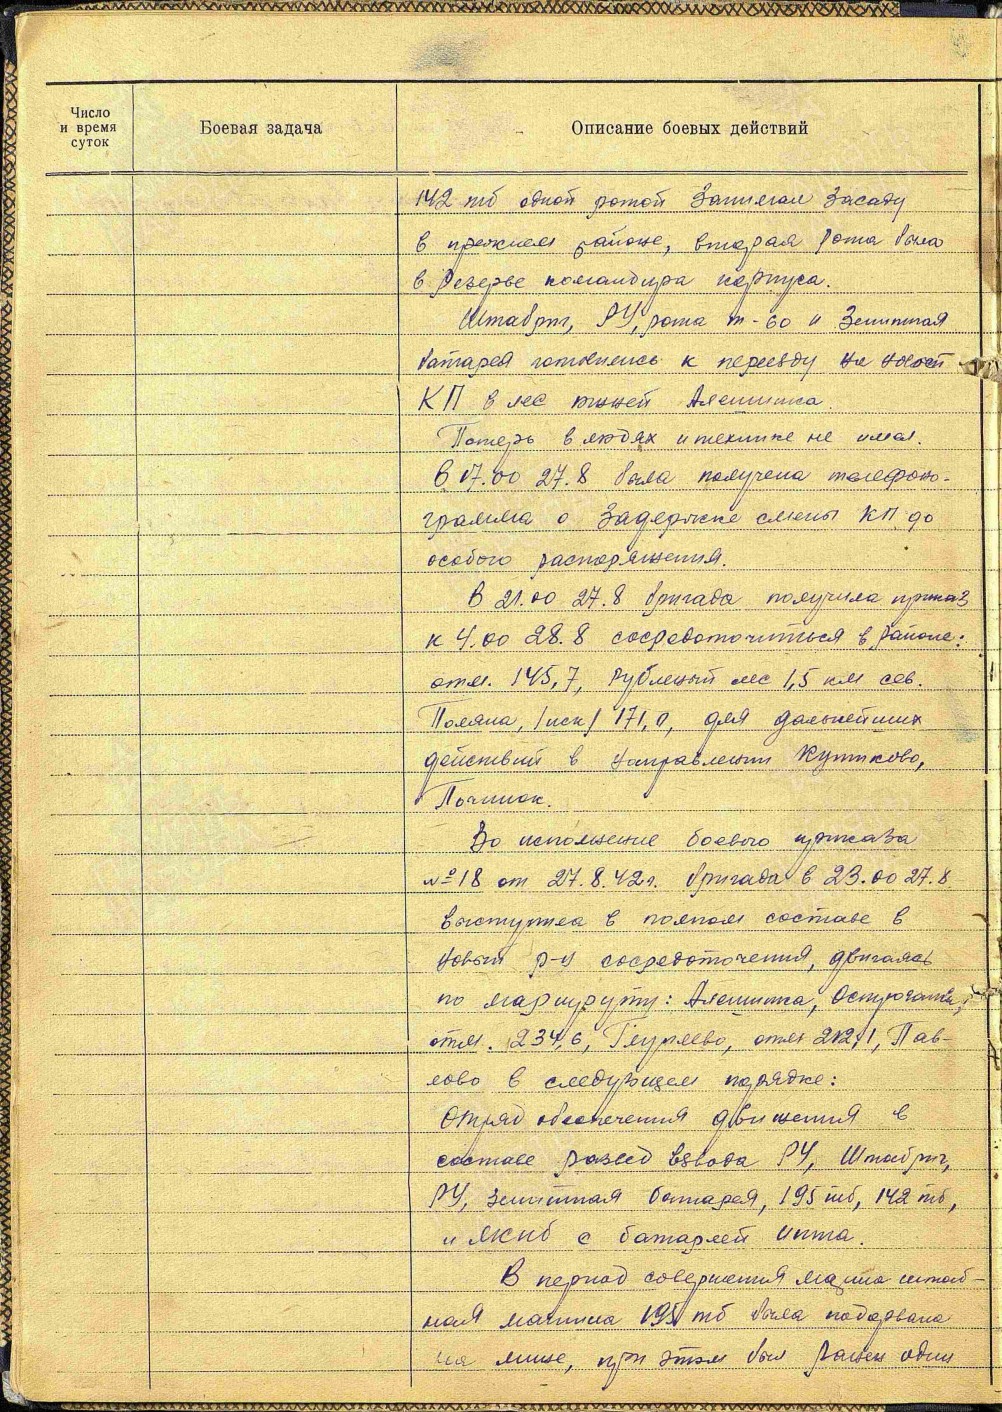 Число
и время
суток
Боевая задача
Описание боевых действий
142 тб одной ротой занимал засаду
в прежнем районе, вторая рота была
в резерве командира корпуса.
Штабриг, РУ, рота т-60 и зенитная
батарея готовились к переезду на новый
КП в лес южней Алешинка.
Потерь в людях и технике не имел.
В 17.00 27.8 была получена телефоно-
грамма о задержке смены КП до
особого распоряжения.
В 21.00 27.8 бригада получила приказ
к 4.00 28.8 сосредоточиться в районе:
отм. 145,7, рубленый лес 1,5 км сев.
Поляна, /иск/ 171,0, для дальнейших
действий в направлении
Починок.
Во исполнение боевого приказа
№18 от 27.8.42 г. бригада в 23.00 27.8
выступила в полном составе в
новый р-н сосредоточения, двигаясь
по маршруту: Алешинка,
отм. 234,6, отм 212,1, Пав-
лово в следующем порядке:
Отряд обеспечения движения в
составе развед взвода РУ, Штабриг,
РУ, зенитная батарея, 195 тб, 142 тб,
и с батареей
В период совершения марша штаб-
ная машина 195 тб была подорвана
на мине, при этом был ранен один